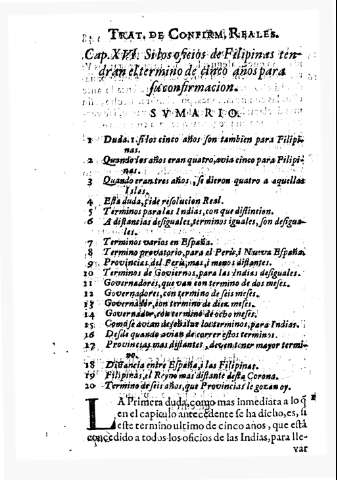 TRAT. DE CONFIRM. REALES.
Cap. XVI. Si los oficios de Filipinas ten-
dran el termino de cinco años para
su confirmacion.
SVMARIO.
1 Duda. 1. si los cinco años son tambien para Filipi-
nas.
2 Quando los años eran quatro, avia cinco para Filipi-
nas.
3 Quando eran tres años, se dieron quatro a aquellas
Islas.
4 Esta duda, pide resolucion Real.
5 Terminos para las Indias, con que distincion.
6 A distancias desiguales, terminos iguales, son desigua-
les.
7 Terminos varios en España.
8 Termino provatorio, para el Perù, i Nueva España.
9 Provincias del Perù, mas, i menos distantes.
10 Terminos de Goviernos, para las Indias desiguales.
11 Governadores, que van con termino de dos meses.
12 Governadores, con termino de seis meses.
13 Governador, con termino de diez meses.
14 Governador, con termino de ocho meses.
15 Como se avian de señalar los terminos, para Indias.
16 Desde quando avian de correr estos terminos.
17 Provincias mas distantes, deven tener mayor termi-
no.
18 Distancia entre España, i las Filipinas.
19 Filipinas, el Reyno mas distante desta Corona.
20 Termino de seis años, que Provincias le gozan oy.
LA Primera duda, como mas inmediata a lo q̃
en el capitulo antecedente se ha dicho, es, si
este termino ultimo de cinco años, que està
concedido a todos los oficios de las Indias, para lle-
var